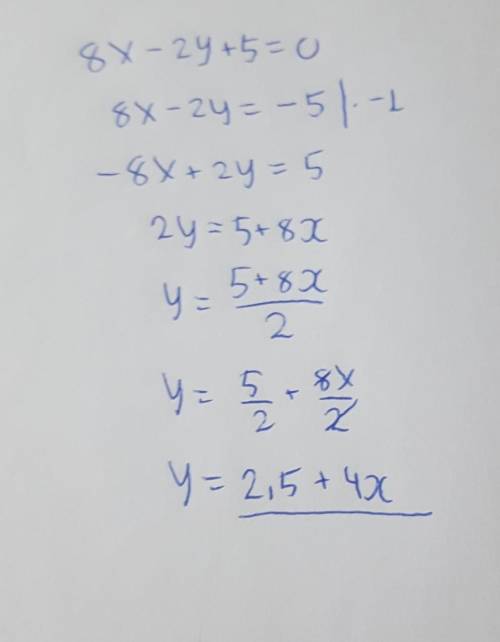 8x - 2y + 5 = 0
8x - 2y = -5 | · -1
-8x + 2y = 5
2y = 5 + 8x
y = \frac{5 + 8x}{2}
y = \frac{5}{2} + \frac{8x}{2}
y = 2,5 + 4x